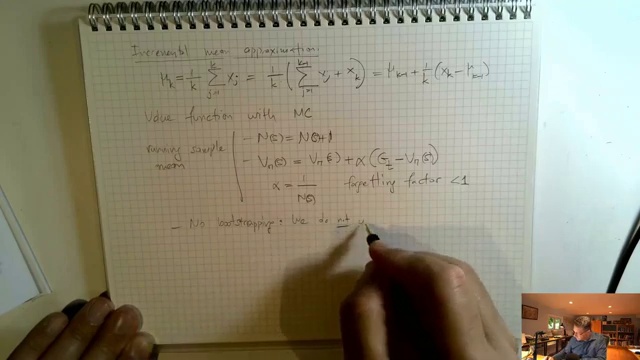 Incremental mean approximation:
μ_k = 1/k ∑_{j=1}^{k} x_j = 1/k ( ∑_{j=1}^{k-1} x_j + x_k ) = μ_{k-1} + 1/k ( x_k − μ_{k-1} )
Value function with MC
running sample mean
- N(s) = N(s)+1
- V_π(s) = V_π(s) + α ( G_t − V_π(s) )
α = 1/N(s) forgetting factor < 1
- No bootstrapping: We do not